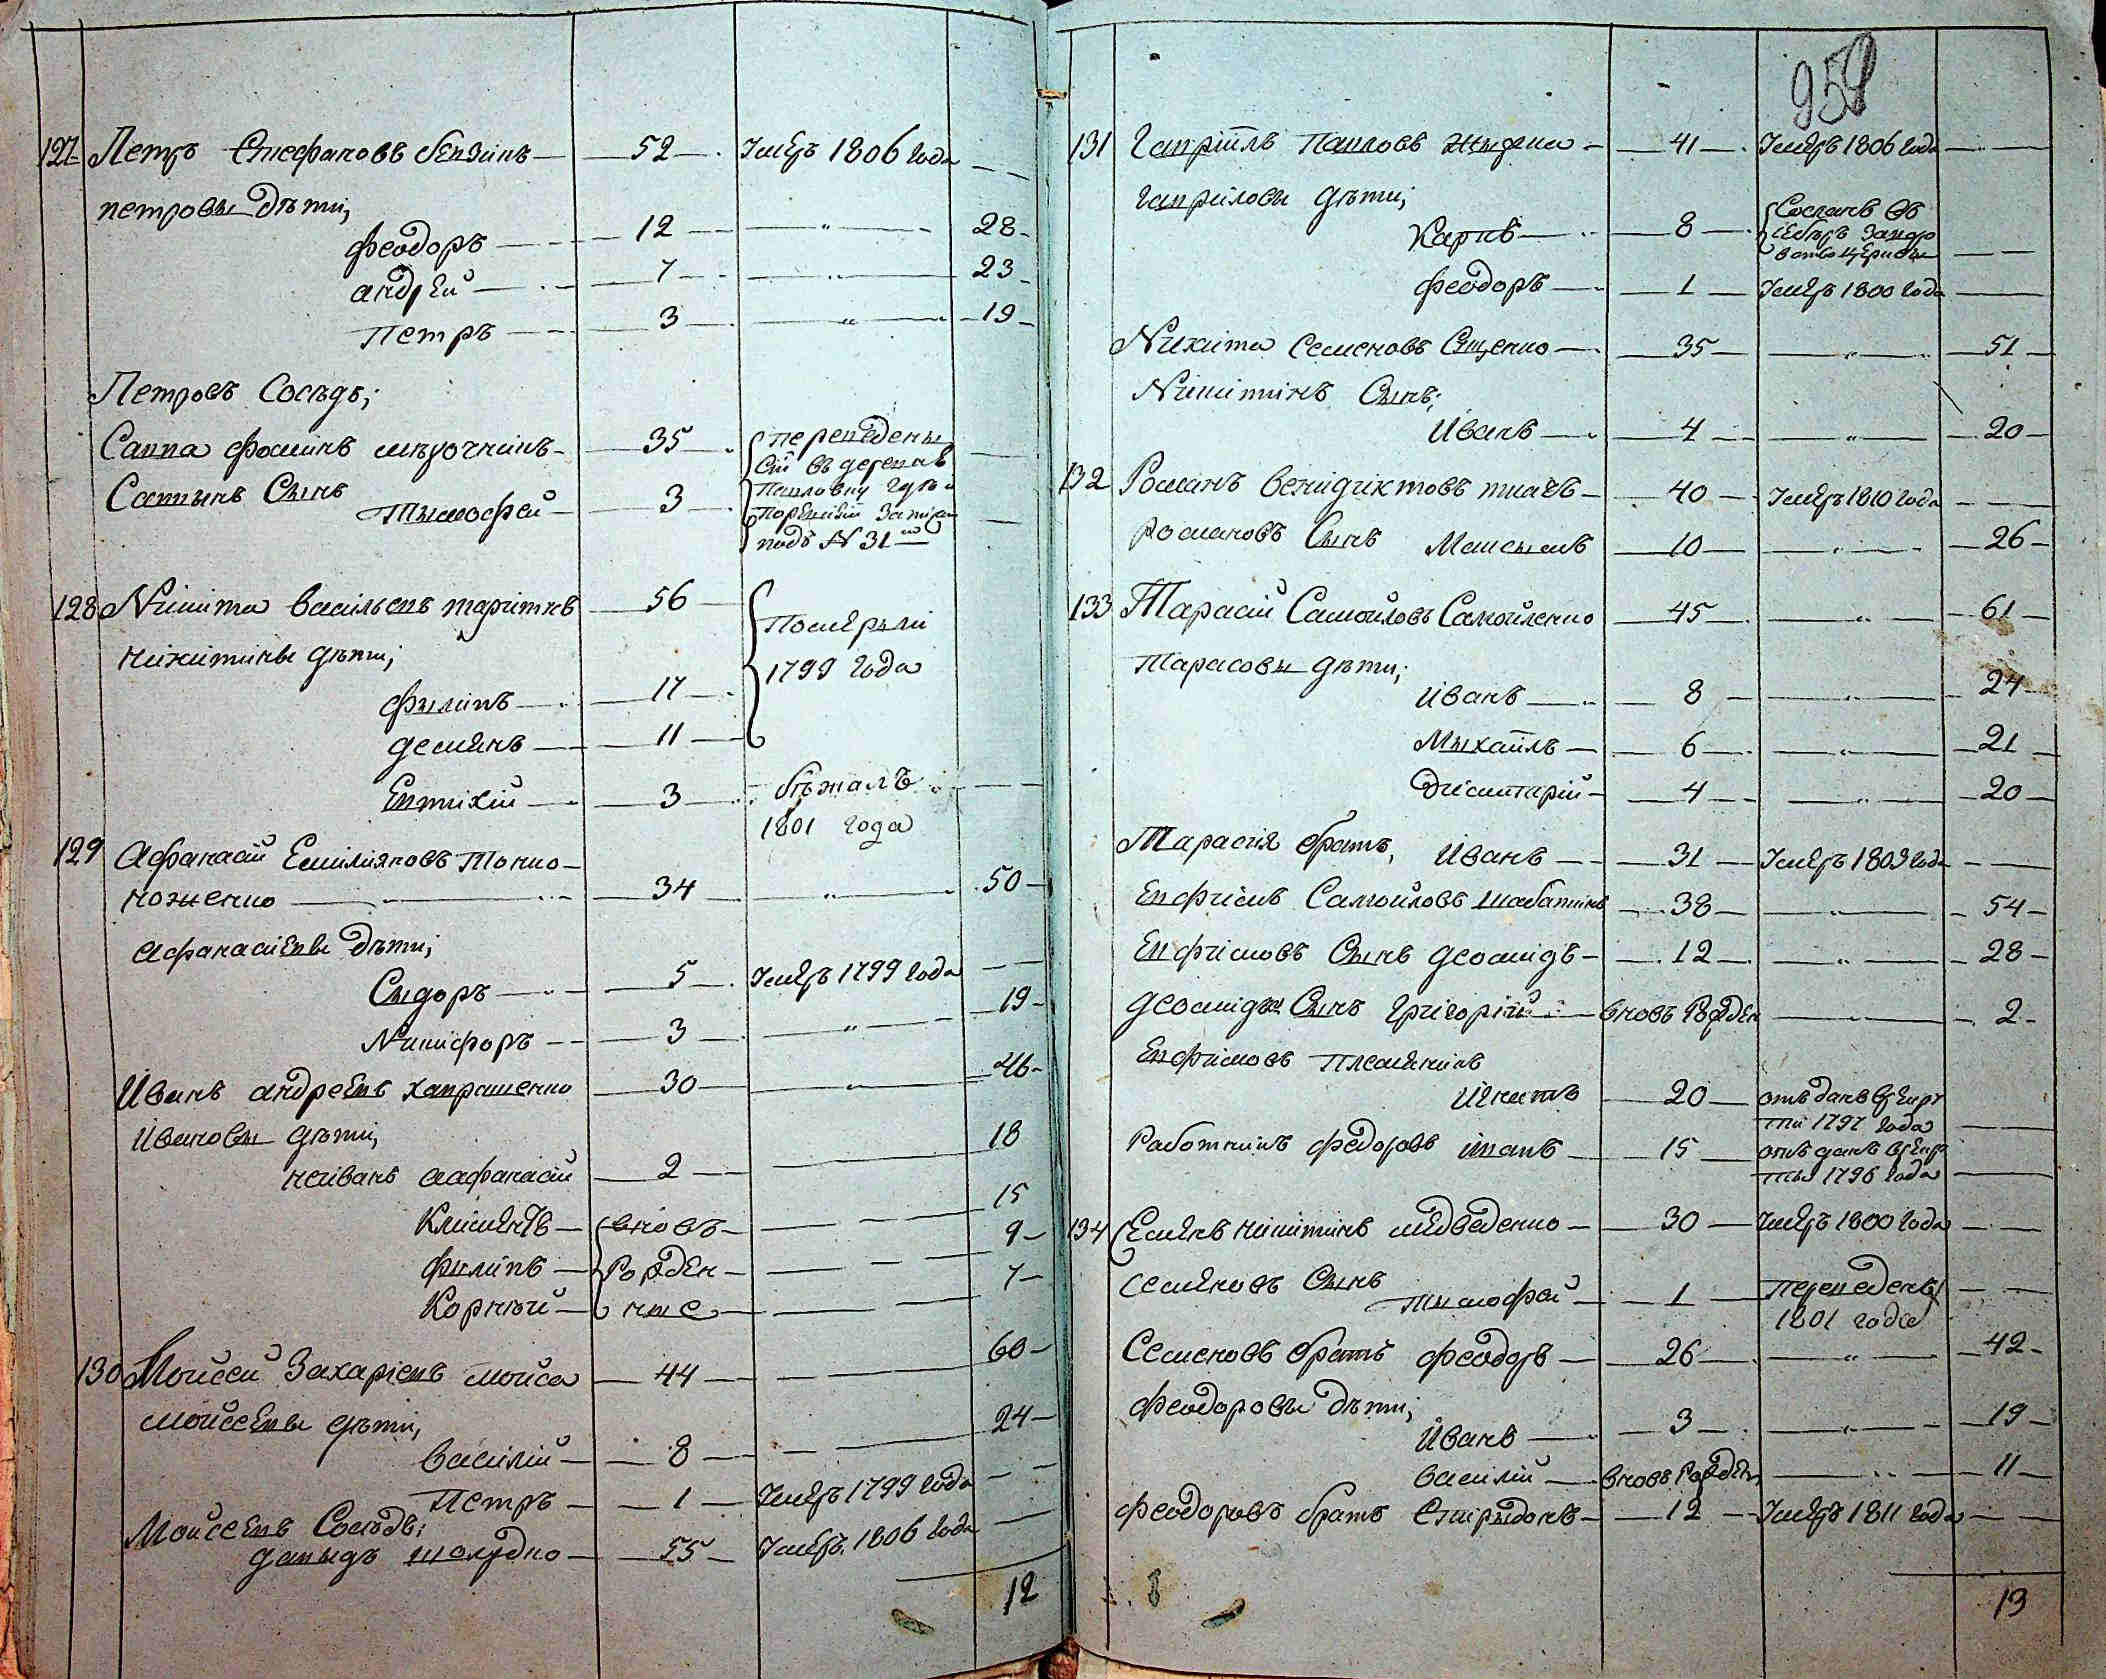 127 Петръ Стефановъ Бензикъ 52 Умеръ 1806 года
петровы дѣти;
феодоръ 12 " 28
андрей 7 " 23
петръ 3 " 19
Петровъ Сосѣдъ;
Савва фоминъ 35 переведены
Саввинъ Сынъ тымофей 3
въ деревню
подъ N 31
128 Никита васильевъ 56 Померли
никитины дѣти; 1799 года
фылипъ 17
демянъ 11
Евтихій 3 бѣжалъ
1801 года
129 Афанасій Емилияновъ Тонко-
ноженко 34 " 50
афанасіевы дѣти;
Сыдоръ 5 Умеръ 1799 года
Никифоръ 3 " 19
Иванъ андреевъ хапрашенко 30 " 46
ивановы дѣти;
афанасій 2 18
Климентъ вновь 15
фылипъ рожден 9
Корнѣй ные 7
130 Мойсей Захаріевъ мойса 44 60
мойсеевы дѣти;
василій 8 24
Петръ 1 Умеръ 1799 года
Мойсеевъ Сосѣдъ;
давыдъ шолудко 55 Умеръ 1806 года
12
958
131 Гавріилъ Павловъ 41 Умеръ 1806 года
гавриловы дѣти;
Карпъ 8 Сосланъ въ
сибѣръ
феодоръ 1 Умеръ 1800 года
Никита семеновъ Сященко 35 " 51
Никитинъ Сынъ;
иванъ 4 " 20
132 Романъ венидиктовъ ткачъ 40 Умеръ 1810 года
романовъ Сынъ Максымъ 10 " 26
133 Тарасій Самойловъ Самойленко 45 " 61
тарасовы дѣти;
иванъ 8 " 24
Мыхаилъ 6 " 21
димитрій 4 " 20
Тарасія братъ, иванъ 31 Умеръ 1809 года
Евфимъ Самойловъ шабатинъ 38 " 54
Евфимовъ Сынъ деомидъ 12 " 28
деомидовъ Сынъ григорій вновь Рожден " 2
Евфимовъ племяникъ
игнатъ 20 отъданъ врекру
ты 1797 года
Работникъ федоровъ иванъ 15 отъданъ врекру
ты 1796 года
134 Семенъ никитинъ медведенко 30 Умеръ 1800 года
семяновъ Сынъ
тымофей 1 переведенъ
1801 года
Семеновъ братъ феодоръ 26 " 42
феодоровы дѣти;
иванъ 3 " 19
василій вновь Рожден " 11
феодоровъ братъ Спирыдонъ 12 Умеръ 1811 года
13